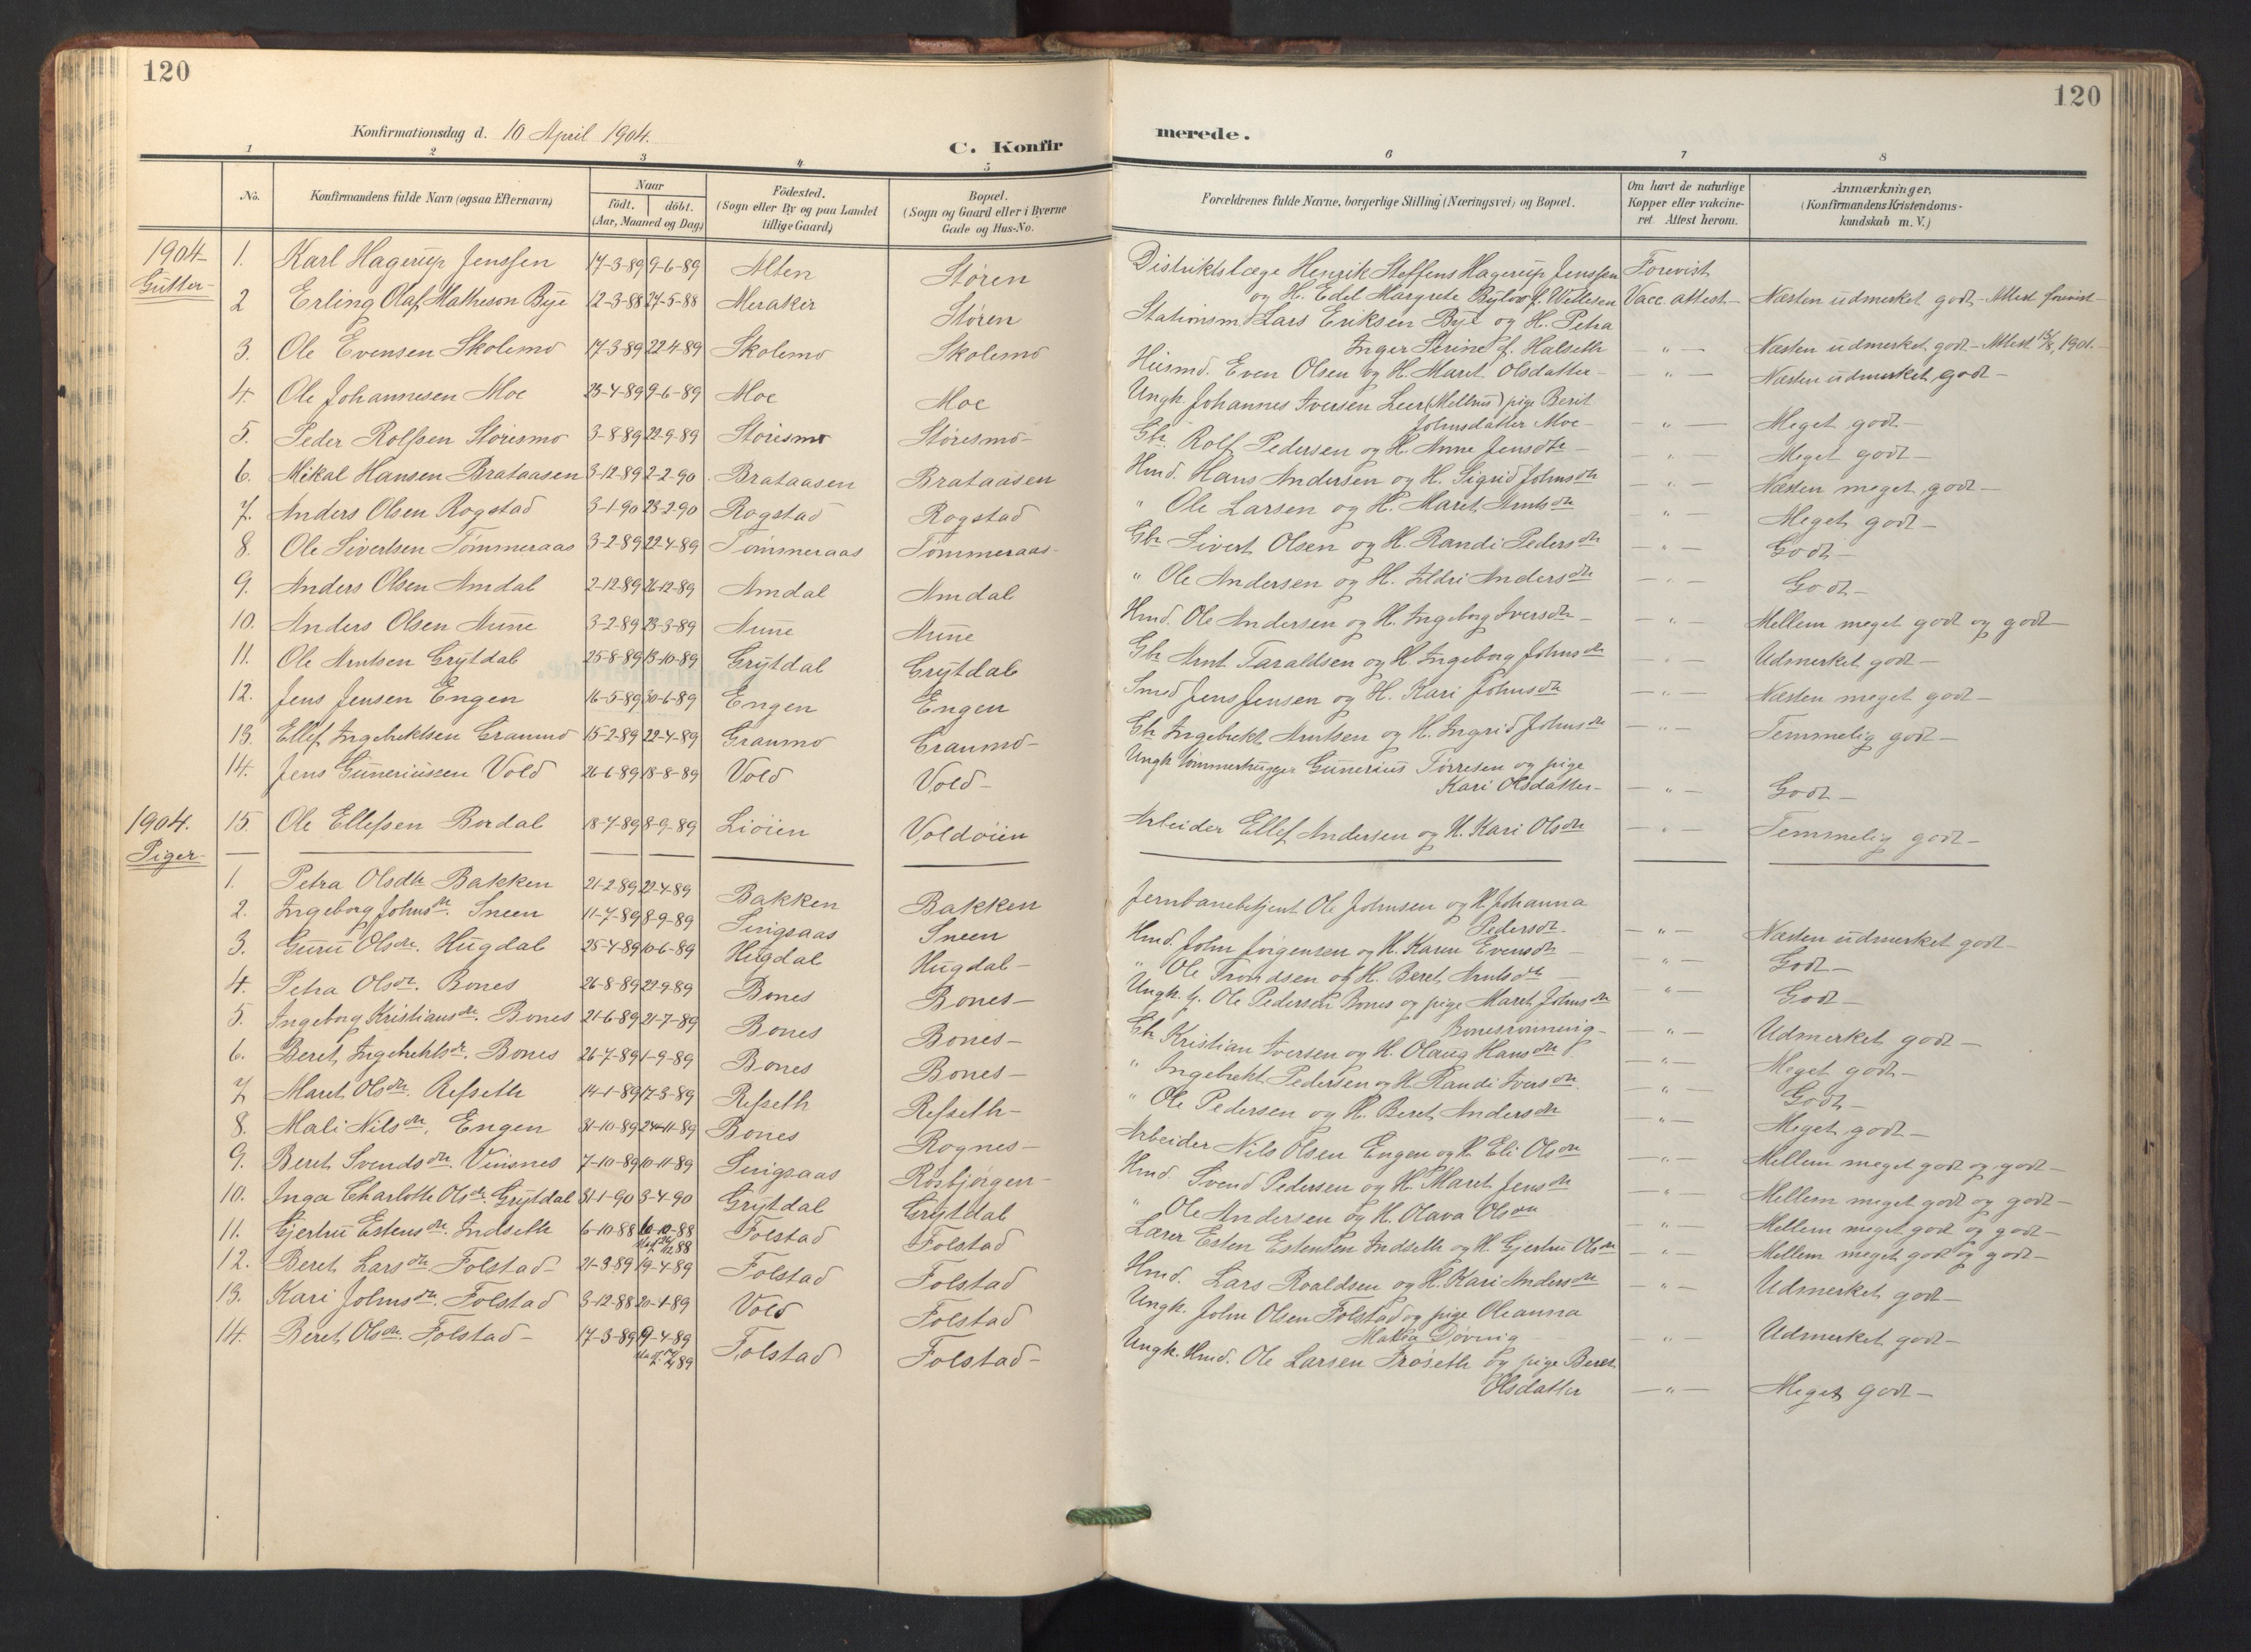 120
120
Konfirmationsdag d. 10 April 1904.
C. Konfir
merede.
1 2 3 4 5 6 7 8
No.
Konfirmandens fulde Navn (ogsaa Efternavn)
Naar
födt. döbt.
(Aar, Maaned og Dag)
Födested.
(Sogn eller By og paa Landet
tillige Gaard)
Bopæl.
(Sogn og Gaard eller i Byerne
Gade og Hus-No.
Forældrenes fulde Navne, borgerlige Stilling (Næringsvei) og Bopæl.
Om havt de naturlige
Kopper eller vakcine-
ret. Attest herom.
Anmærkninger.
(Konfirmandens Kristendoms-
kundskab m. V.)
1904-
Gutter-
1. Karl Hagerup Jenssen 17-3-89 9-6-89 Alten Støren Distriktslæge Henrik Steffens Hagerup Jenssen Forevist
og H. Edel Margrete Bylow f. Willesen Vacc. attest- Næsten udmerket godt - Attest forevist-
2 Erling Olaf Matheson Bye 12-3-88 27-5-88 Meraker Støren Stationsm Lars Eriksen Bye og H. Petra
Inger Serine f. Halseth - " - Næsten udmerket godt - Attest 13/8, 1901.-
3. Ole Evensen Skolemo 17-3-89 22-4-89 Skolemo Skolemo Husmd. Even Olsen og H. Maret Olsdatter - - " - Næsten udmerket godt -
4 Ole Johannesen Moe 23-4-89 9-6-89 Moe Moe Ungk. Johannes Iversen Leer (Melhus) pige Berit
Johnsdatter Moe - - " - Meget godt -
5. Peder Rolfsen Storismo 3-8-89 22-9-89 Storismo Störismo- Gbr. Rolf Pedersen og H. Anne Jensdtr - - " - Meget godt -
6. Mikal Hansen Brataasen 3-12-89 2-2-90 Brataasen Brataasen Hmd. Hans Andersen og H. Sigrid Johnsdtr - " - Næsten meget godt -
7. Anders Olsen Rogstad 3-1-90 23-2-90 Rogstad Rogstad " Ole Larsen og H. Maret Arntsdtr - " - Meget godt -
8. Ole Sivertsen Tömmeraas 3-2-89 22-4-89 Tömmeraas Tömmeraas- Gbr Sivert Olsen og H. Randi Pedersdtr - " - Godt -
9. Anders Olsen Amdal 2-12-89 26-12-89 Amdal Amdal " Ole Andersen og H. Ildri Andersdtr - " - Godt -
10. Anders Olsen Aune 3-2-89 23-3-89 Aune Aune Hmd. Ole Andersen og H. Ingeborg Iversdtr - - " - Mellem meget godt og godt
11. Ole Arntsen Grytdal 25-8-89 13-10-89 Grytdal Grytdal Gbr Arnt Taraldsen og H. Ingeborg Johnsdtr - " - Udmerket godt -
12. Jens Jensen Engen 16-5-89 30-6-89 Engen Engen Smed Jens Jensen og H. Kari Johnsdtr - " - Næsten meget godt -
13. Ellef Ingebrektsen Graumo 15-2-89 22-4-89 Graumo Graumo- Gbr Ingebrekt Arntsen og H. Ingrid Johnsdtr - " - Temmelig godt -
14. Jens Guneriussen Vold 26-6-89 18-8-89 Vold Vold- Ungk tömmerhugger Gunerius Törresen og pige
Kari Olsdatter- - " - Godt -
1904.
Piger-
15. Ole Ellefsen Bordal 18-7-89 8-9-89 Lioien Voldöien Arbeider Ellef Andersen og H. Kari Olsdtr - " - Temmelig godt -
1. Petra Olsdtr Bakken 21-2-89 22-4-89 Bakken Bakken Jernbanebetjent Ole Johnsen og H. Johanna
Pedersdtr. - " - Næsten udmerket godt -
2. Ingeborg Johnsdtr. Sneen 11-7-89 8-9-89 Singsaas Sneen Hmd. John Jörgensen og H. Karen Evensdtr - " - Godt -
3. Guru Olsdtr. Hugdal 25-4-89 10-6-89 Hugdal Hugdal- " Ole Trondsen og H. Beret Arntsdtr - - " - Godt -
4. Petra Olsdtr. Bones 26-8-89 22-9-89 Bones Bones- Ungk. g. Ole Pedersen Bones og pige Maret Johnsdtr
Bonesrønning - - " - Udmerket godt -
5. Ingeborg Kristiansdtr. Bones 21-6-89 21-7-89 Bones Bones- Gbr Kristian Iversen og H. Olaug Hansdtr. - " - Meget godt -
6. Beret Ingebrektsdtr. Bones 26-7-89 1-9-89 Bones Bones- " Ingebrekt Pedersen og H. Randi Iversdtr. - " - Godt -
7 Maret Olsdtr. Refseth 14-1-89 17-3-89 Refseth Refseth- " Ole Pedersen og H. Beret Andersdtr - " - Meget godt -
8. Mali Nilsdtr. Engen 31-10-89 24-11-89 Bones Rognes- Arbeider Nils Olsen Engen og H. Eli Olsdtr - " - Mellem meget godt og godt -
9. Beret Svendsdtr. Vinsnes 7-10-89 10-11-89 Singsaas Rosbjörgen- Hmd. Svend Pedersen og H. Maret Jensdtr - " - Mellem meget godt og godt -
10. Inga Charlotte Olsdtr. Grytdal 31-1-90 3-4-90 Grytdal Grytdal " Ole Andersen og H. Olava Olsdtr - " - Mellem meget godt og godt -
11. Gjertru Estensdtr. Indseth 6-10-88 16-10-88 Folstad Folstad Lærer Esten Estensen Indseth og H. Gjertru Olsdtr - " - Mellem meget godt og godt -
12. Beret Larsdtr. Folstad- 21-3-89 19-4-89 Folstad Folstad Hmd. Lars Roaldsen og H. Kari Andersdtr - " - Udmerket godt -
13. Kari Johnsdtr. Folstad 3-12-88 20-1-89 Vold Folstad Ungk. John Olsen Folstad og pige Oleanna
Matea Døving - " - Udmerket godt -
14. Beret Olsdtr. Folstad - 17-3-89 19-4-89 Folstad Folstad- Ungk. Hmd. Ole Larsen Fröseth og pige Beret
Olsdatter - " - Meget godt -